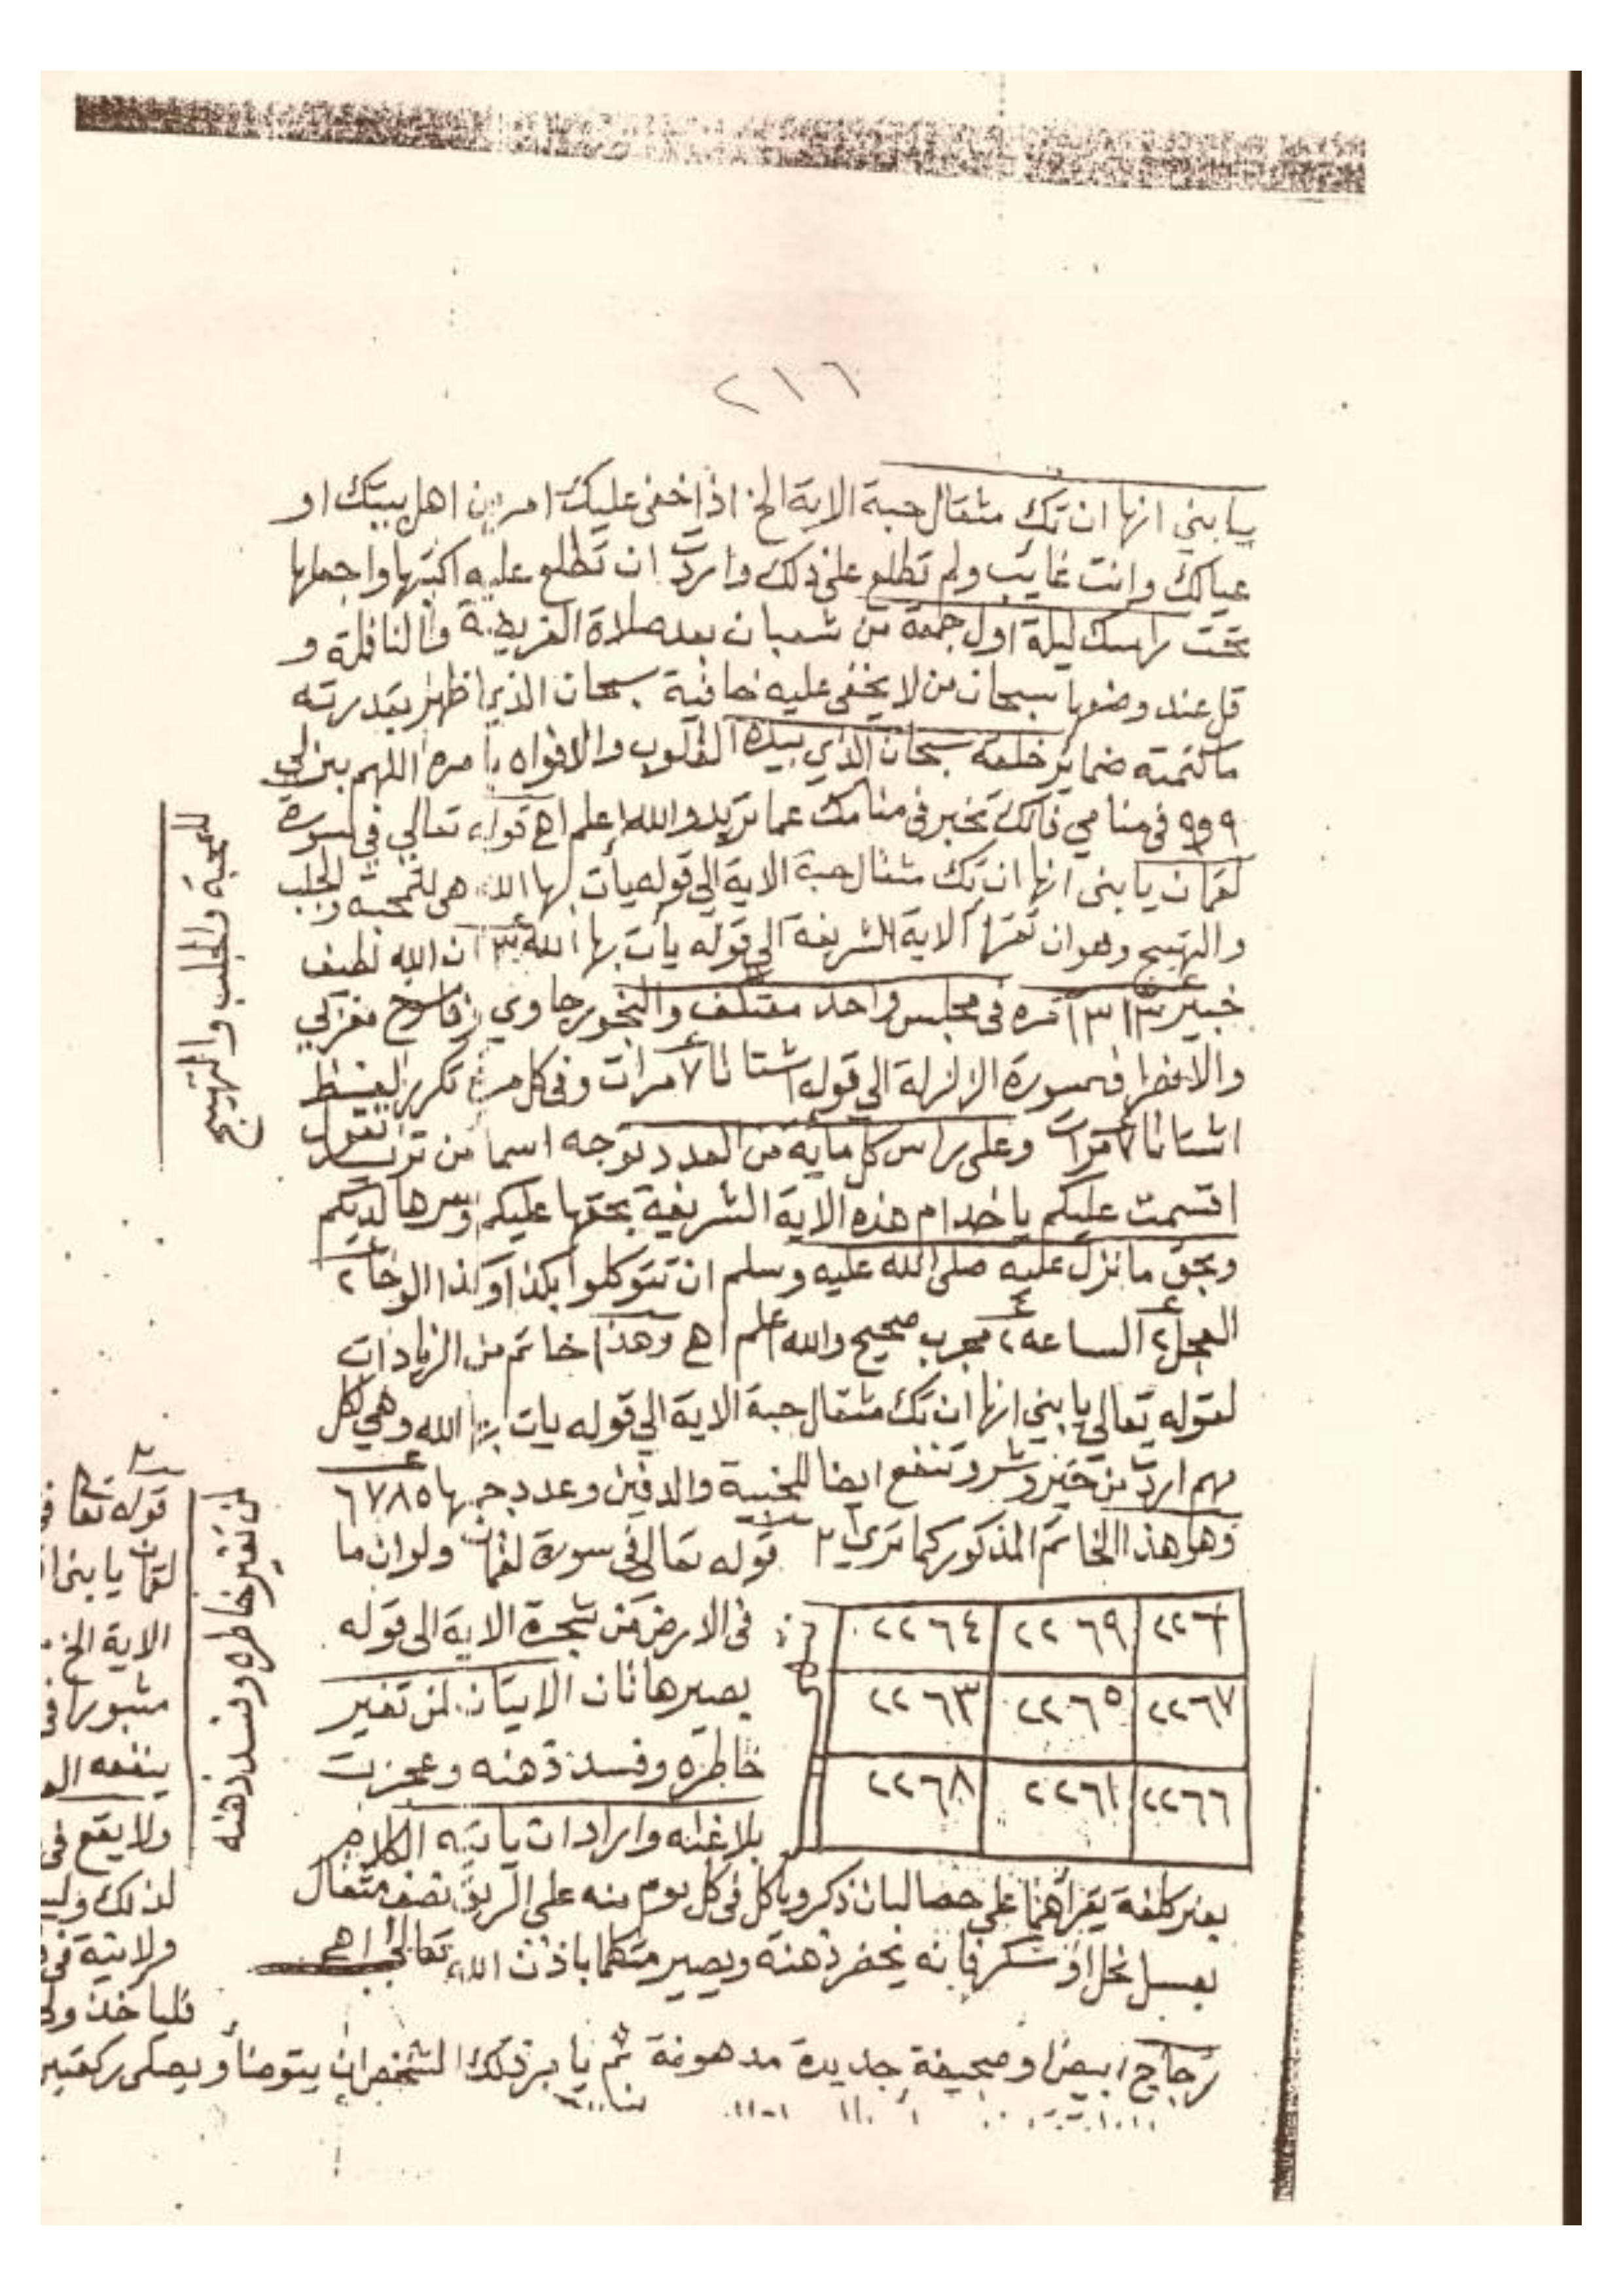 ٢١٦
يا بني انها ان تك مثقال حبة الاية الخ اذا خفى عليك امر من اهل بيتك او
عيالك وانت غايب ولم تطلع على ذلك واردت ان تطلع عليه اكتبها واجعلها
تحت راسك ليلة اول جمعة من شعبان بعد صلاة الفريضة والنافلة و
قل عند وضعها سبحان من لا يخفى عليه خافية سبحان الذي اظهر بقدرته
ما كتمته ضماير خلقه سبحان الذي بيده القلوب والافواه يا مره اللهم بين لي
٩٩٩ في منامي فانك تخبر في منامك عما تريد والله اعلم اهـ قوله تعالى في سورة
لقمان يا بنى انها ان تك مثقال حبة الاية الى قوله يأت بها الله هى للمحبة والجلب
والتهييج وهو ان تقرا الاية الشريفة الى قوله يأت بها الله ٣ ان الله لطيف
خبير ٣١٣ مرة فى مجلس واحد معتكف والبخور جاوي مغربي
سورة الزلزلة الى قوله اشتاتا ٧ مرات وفى كل مرة تكرر لفظ
اشتاتا ٧ مرات وعلى راس كل ماية من العدد توجه اسما من تريد تقول
اقسمت عليكم يا خدام هذه الاية الشريفة بحقها عليكم وسرها لديكم
وبحق ما نزل عليه صلى الله عليه وسلم ان تتوكلوا بكذا وكذا الوحا ٢
العجل ٢ الساعه ٢ مجرب صحيح والله اعلم اهـ وهذا خاتم من الزيادات
لقوله تعالى يا بني انها ان تك مثقال حبة الاية الى قوله يات بها الله وهي لكل
مهم اردت من خير وشر وتنفع ايضا للخبية والدفين وعدد جملها ٦٧٨٥
وهو هذا الخاتم المذكور كما ترى قوله تعالى فى سورة لقمان ولو ان ما
فى الارض من شجرة الاية الى قوله
بصير هاتان الايتان لمن تغير
خاطره وفسد ذهنه وعجزت
بلاغته واراد ان ياتيه الكلام
٢٢٦٩ ٢٢٦٤
٢٢٦٧ ٢٢٦٥ ٢٢٦٣
٢٢٦٦ ٢٢٦١ ٢٢٦٨
بغير كلفة يقرأهما على حصا لبان ذكر وياكل فى كل يوم منه على الريق نصف مثقال
بعسل نحل او سكر فانه يحضر ذهنه ويصير متكلما باذن الله تعالى اهـ
زجاج ابيض او صحيفة جديدة مدهونة ثم يا مر ذلك الشخص ان يتوضأ ويصلى ركعتين
للمحبة والجلب والتهييج
لمن تغير خاطره وفسد ذهنه
قوله تعا فى
لقمان يا بنى ا
الاية الخ
ينفعه
ولا يقع فى
لذلك
فليا خذ